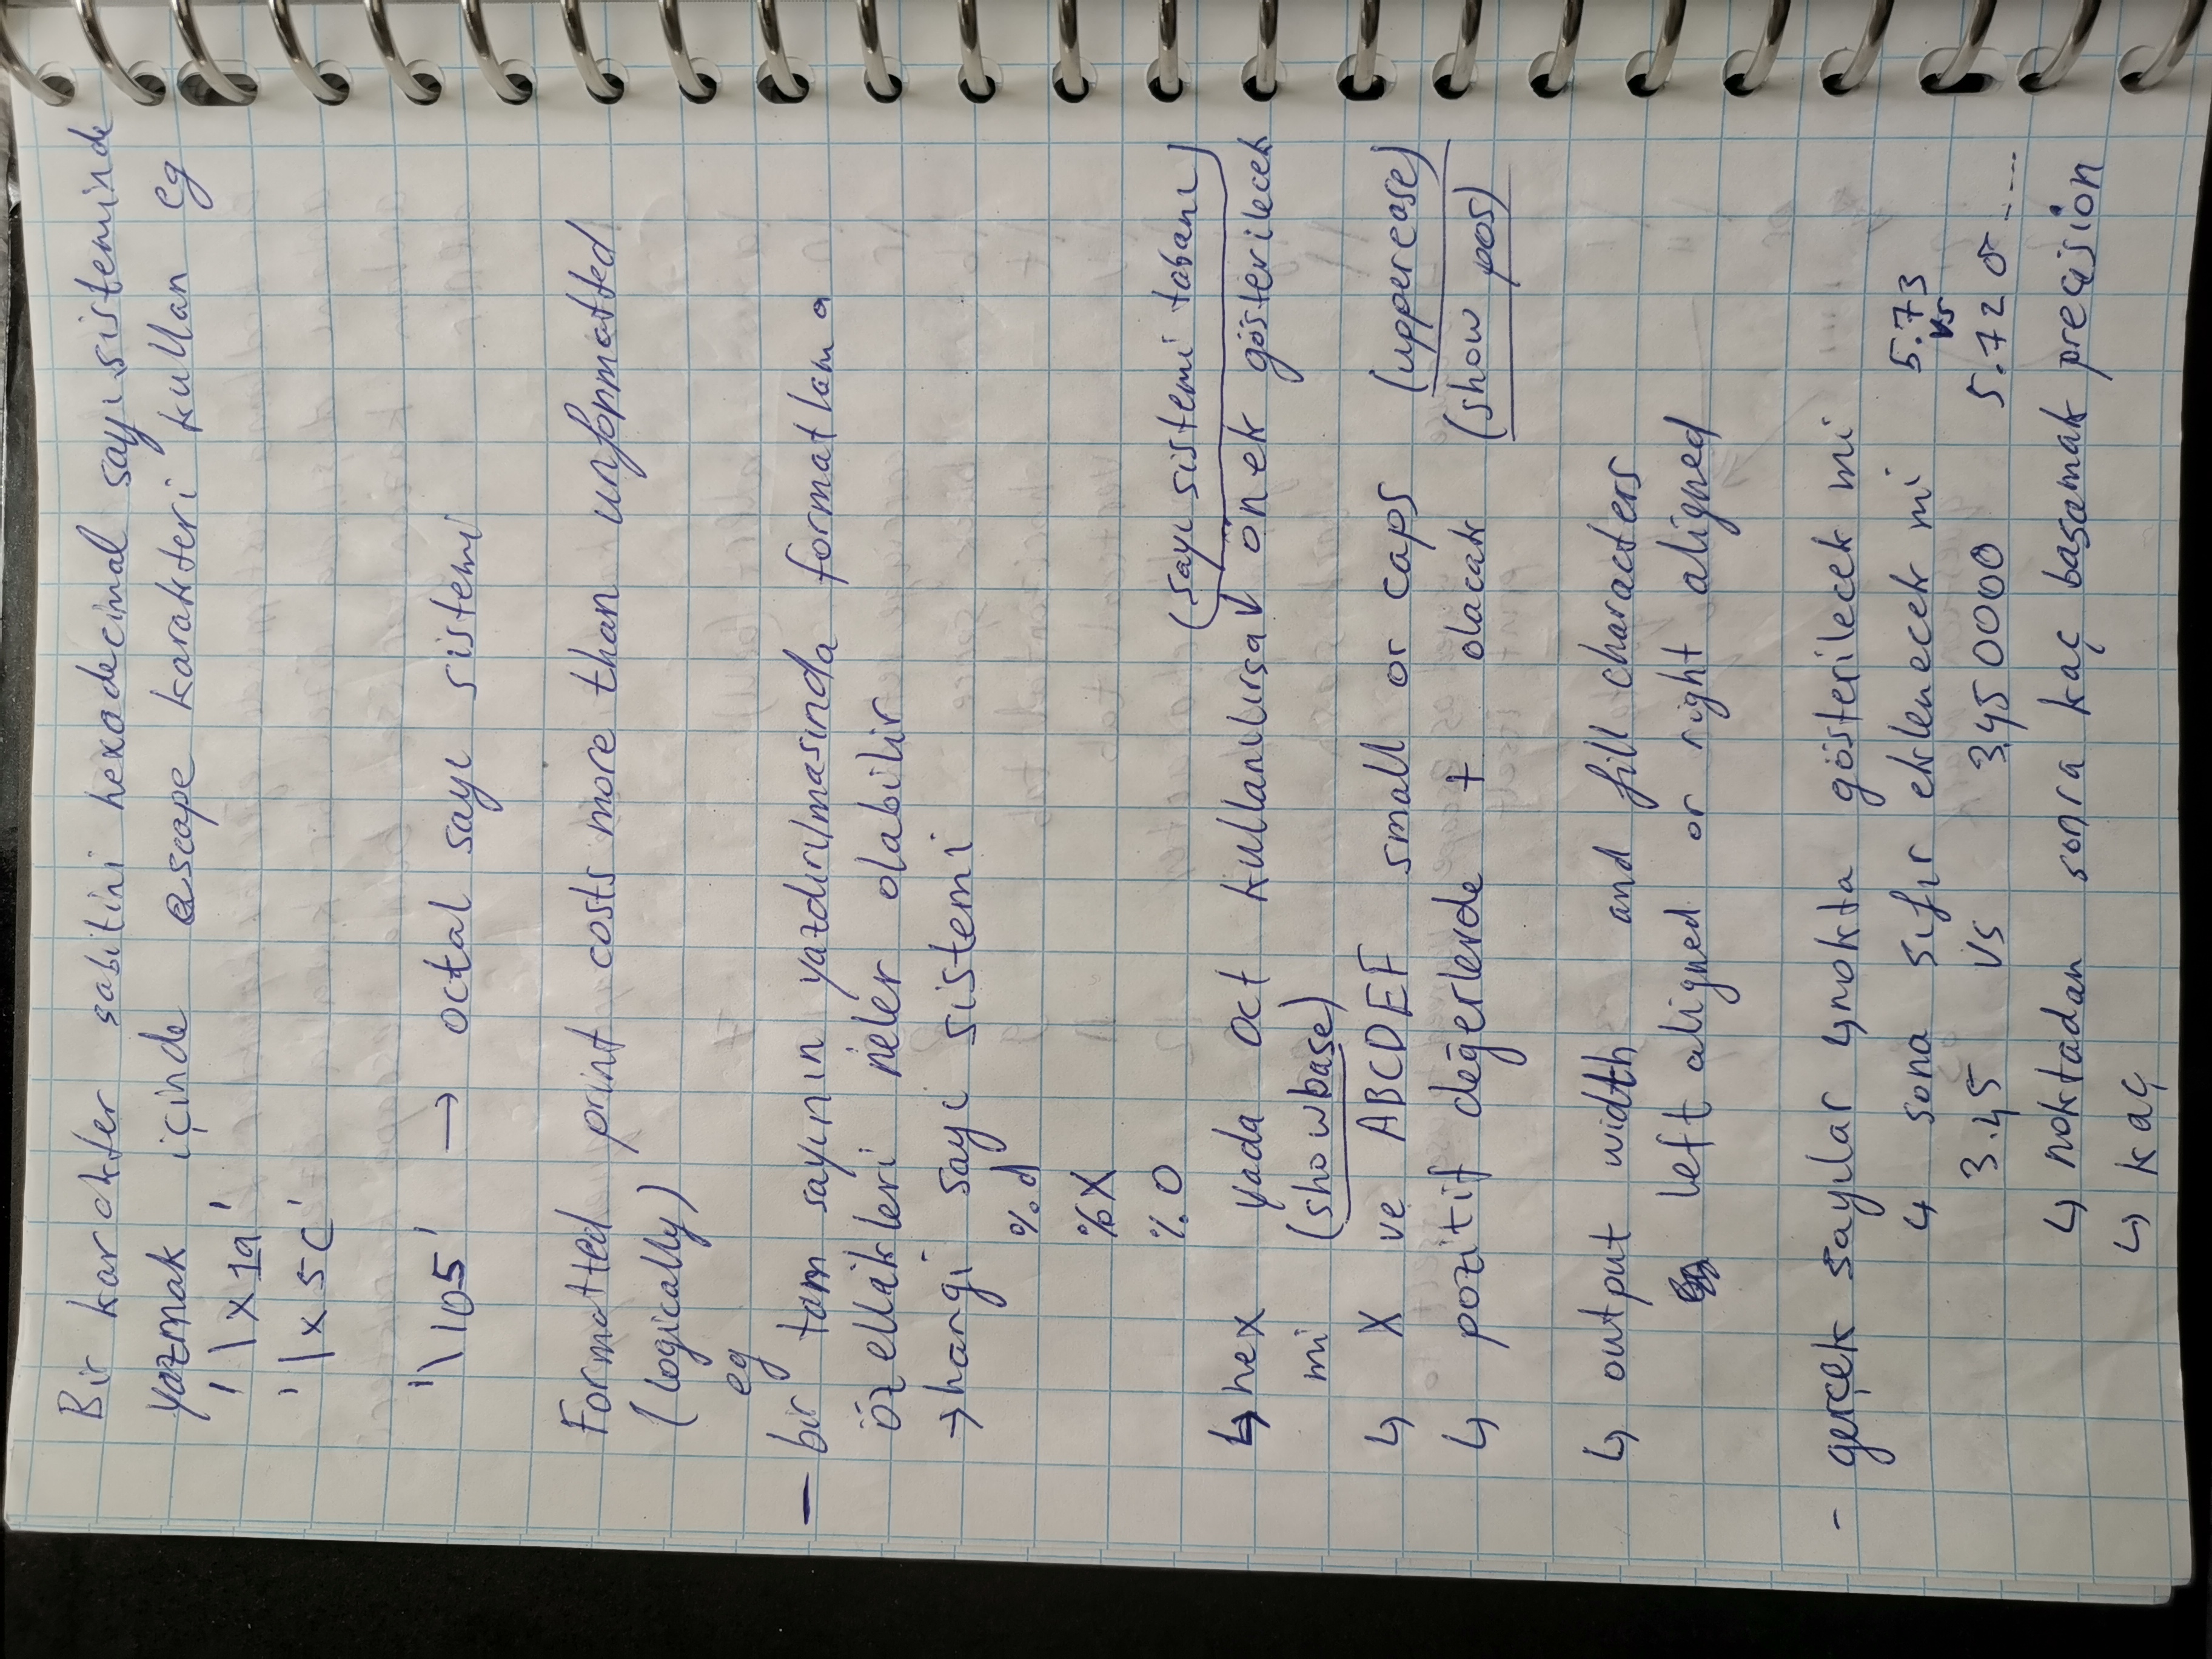 Bir karakter sabitini hexadecimal sayı sisteminde
yazmak içinde escape karakteri kullan eg
'\x1a'
'\x5C'
'\105' → octal sayı sistemi
Formatted print costs more than unformatted
(logically)
eg
- bir tam sayının yazdırılmasında formatlama
özellikleri neler olabilir
→ hangi sayı sistemi
%d
%X
%O
(sayı sistemi tabanı)
↳ hex yada oct kullanılırsa ↓ önek gösterilecek
mi (showbase)
↳ X ve ABCDEF small or caps (uppercase)
↳ pozitif değerlerde + olacak (show pos)
↳ output width and fill characters
left aligned or right aligned
- gerçek sayılar ↳ nokta gösterilecek mi
↳ sona sıfır eklenecek mi 5.73
vs
3.45 vs 3.450000 5.720....
↳ noktadan sonra kaç basamak precision
↳ kaç